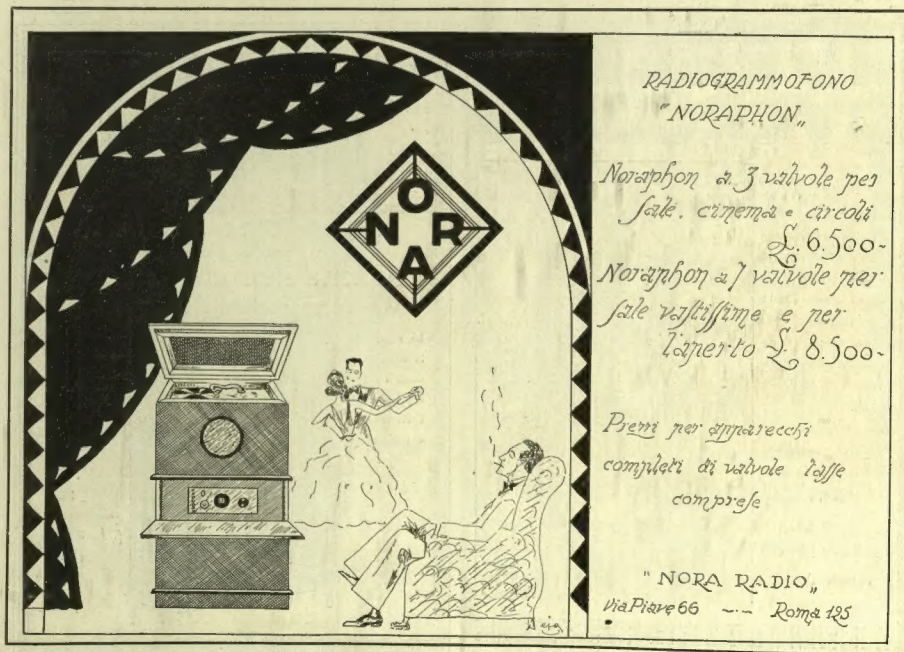 NORA
RADIOGRAMMOFONO
"NORAPHON„
Noraphon a 3 valvole per
sale, cinema e circoli
£. 6.500-
Noraphon a 7 valvole per
sale vastissime e per
l'aperto £ 8.500-
Prezzi per apparecchi
completi di valvole tasse
comprese
"NORA RADIO„
Via Piave 66 -·- Roma 125